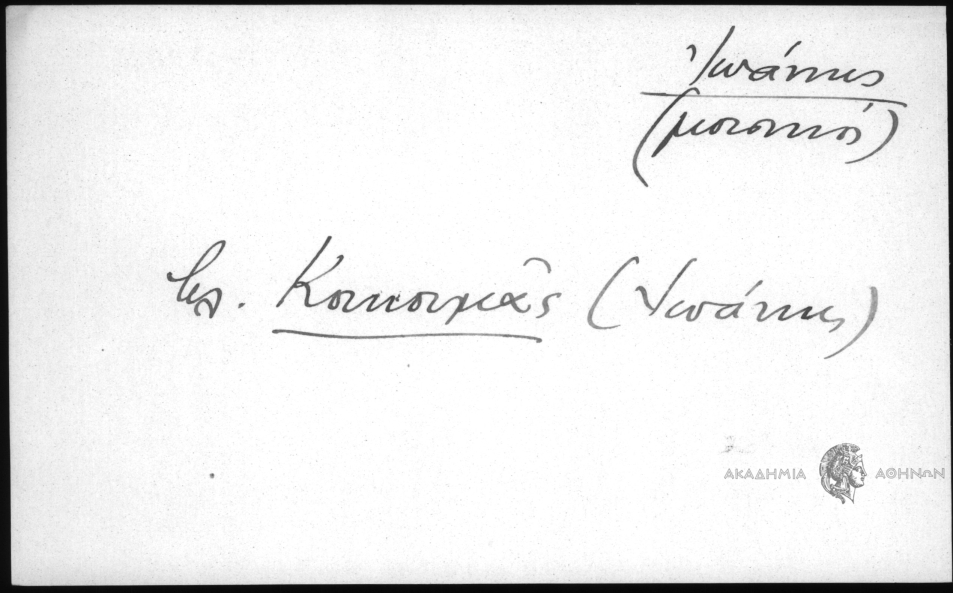 Ἰωάννης
(μουσικός)
βλ. Κουκουμᾶς (Ἰωάννης)
ΑΚΑΔΗΜΙΑ ΑΘΗΝΩΝ